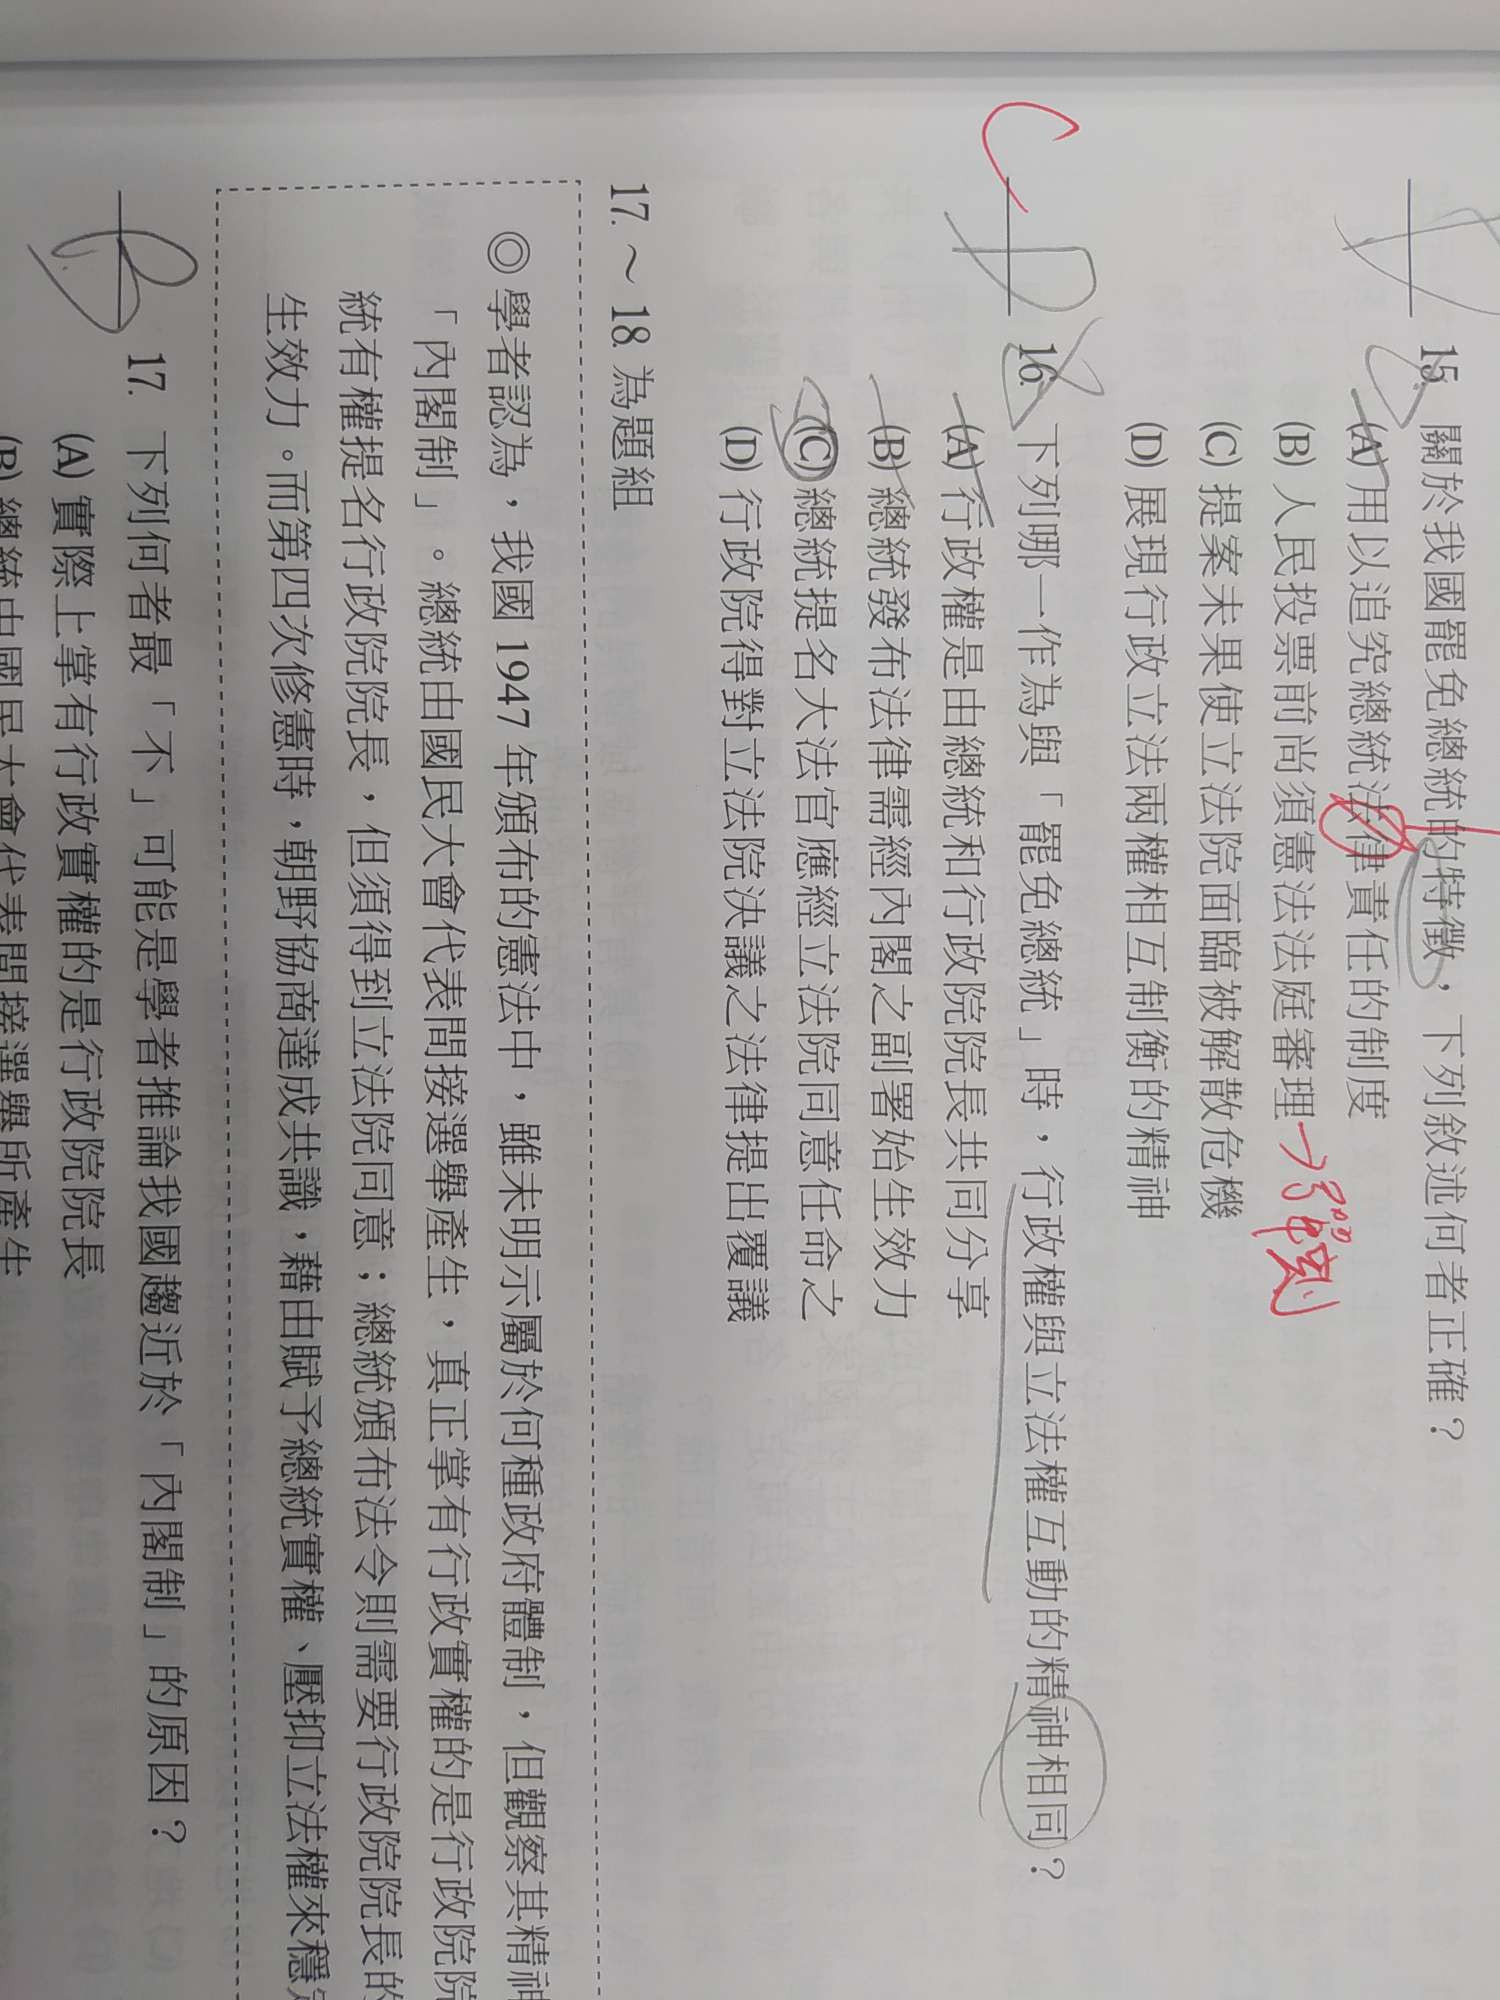 15. 關於我國罷免總統的特徵，下列敘述何者正確？
(A) 用以追究總統法律責任的制度
(B) 人民投票前尚須憲法法庭審理→彈劾
(C) 提案未果使立法院面臨被解散危機
(D) 展現行政立法兩權相互制衡的精神
C D 16. 下列哪一作為與「罷免總統」時，行政權與立法權互動的精神相同？
(A) 行政權是由總統和行政院院長共同分享
(B) 總統發布法律需經內閣之副署始生效力
(C) 總統提名大法官應經立法院同意任命之
(D) 行政院得對立法院決議之法律提出覆議
17. ～ 18. 為題組
◎學者認為，我國 1947 年頒布的憲法中，雖未明示屬於何種政府體制，但觀察其精神
「內閣制」。總統由國民大會代表間接選舉產生，真正掌有行政實權的是行政院院
統有權提名行政院院長，但須得到立法院同意；總統頒布法令則需要行政院院長的
生效力。而第四次修憲時，朝野協商達成共識，藉由賦予總統實權、壓抑立法權來穩定
B 17. 下列何者最「不」可能是學者推論我國趨近於「內閣制」的原因？
(A) 實際上掌有行政實權的是行政院院長
(B) 總統由國民大會代表間接選舉所產生